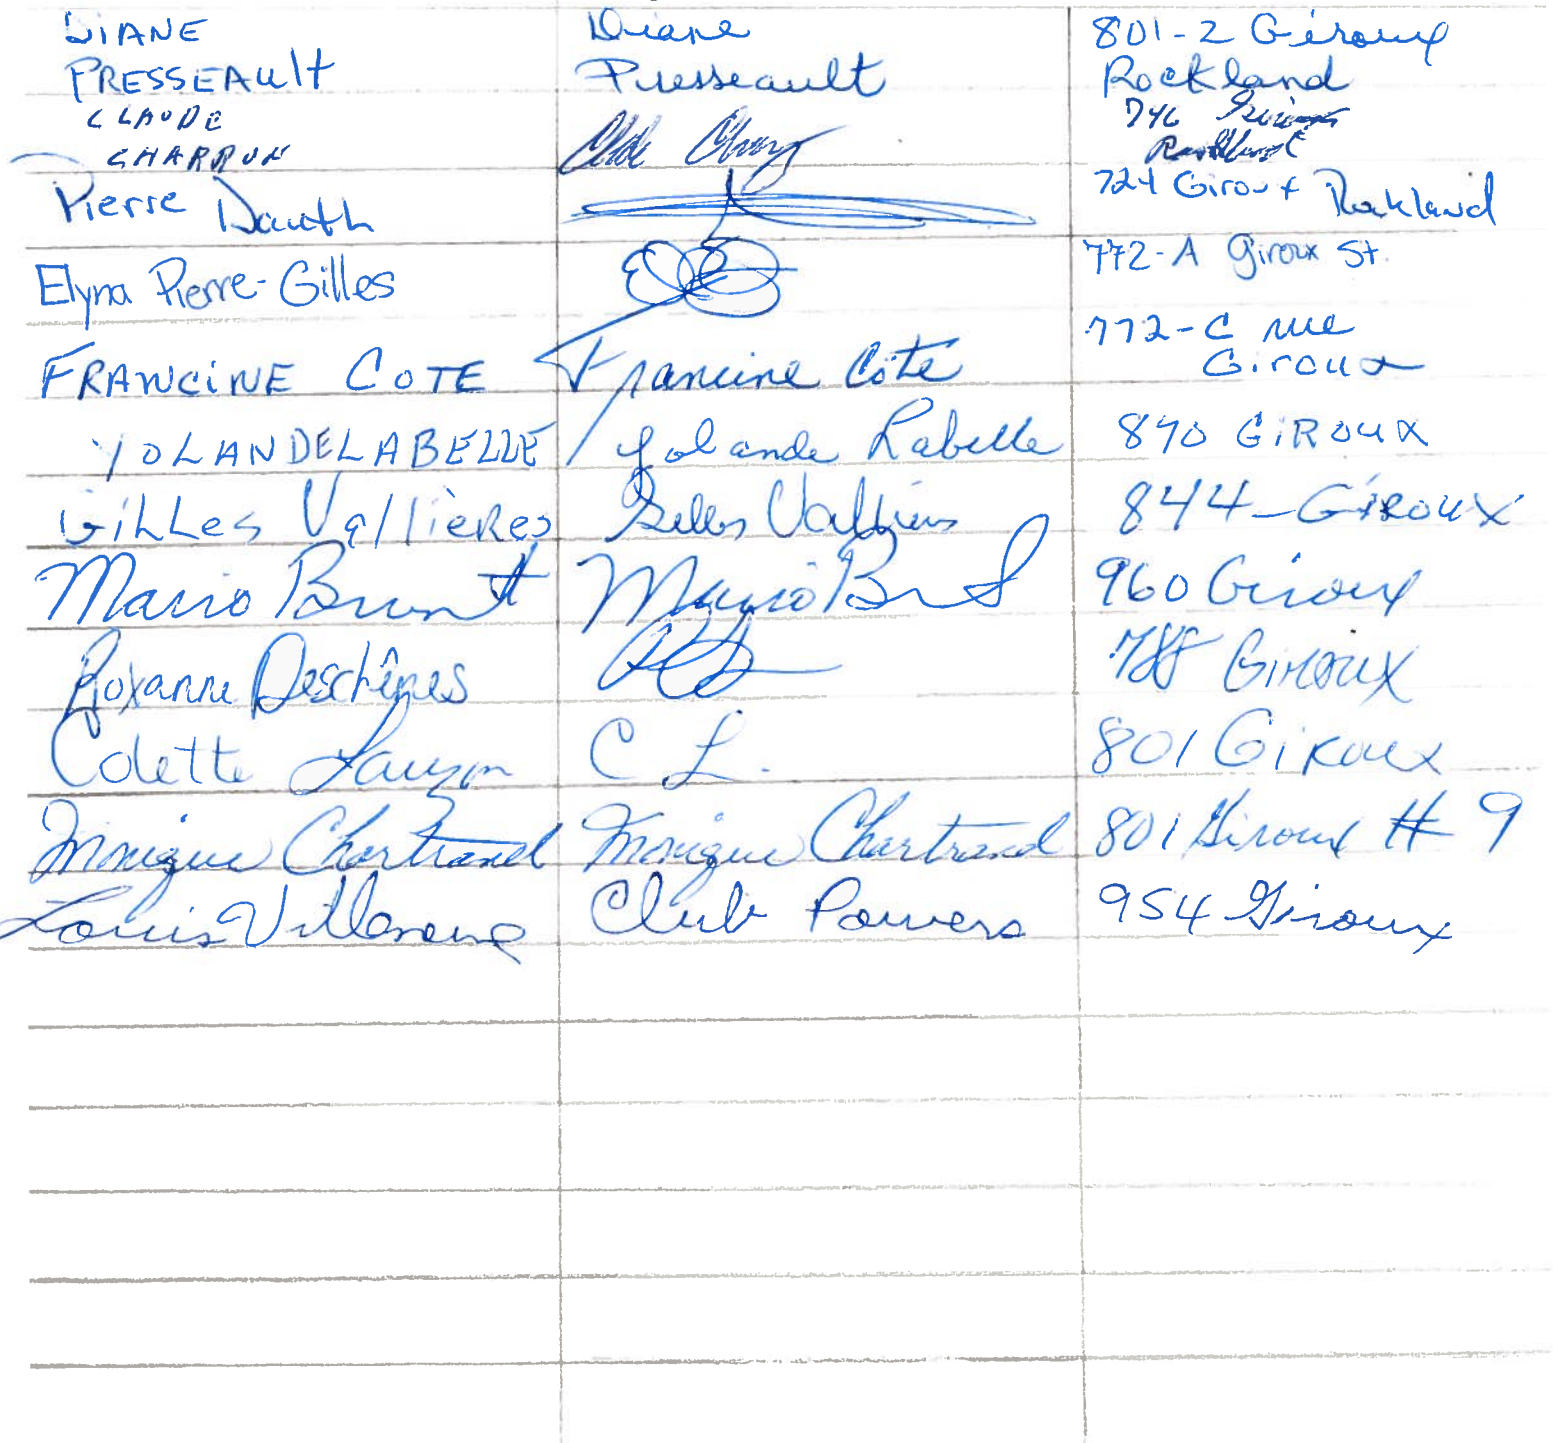 DIANE Diane 801-2 Giroux
PRESSEAULT Presseault Rockland
CLAUDE 746 Giroux
CHARRON Rockland
Pierre Dauth 724 Giroux Rockland
Elyna Pierre-Gilles 772-A Giroux St.
FRANCINE COTE Francine Côté 772-C rue
Giroux
YOLANDE LABELLE Yolande Labelle 890 GIROUX
GILLes Vallières Gilles Vallières 844-GIROUX
Mario Brunet Mario 960 Giroux
Roxanne Deschênes 788 Giroux
Colette Lauzon C L. 801 Giroux
Monique Chartrand Monique Chartrand 801 Giroux # 9
Louis Villeneuve Club Powers 954 Giroux